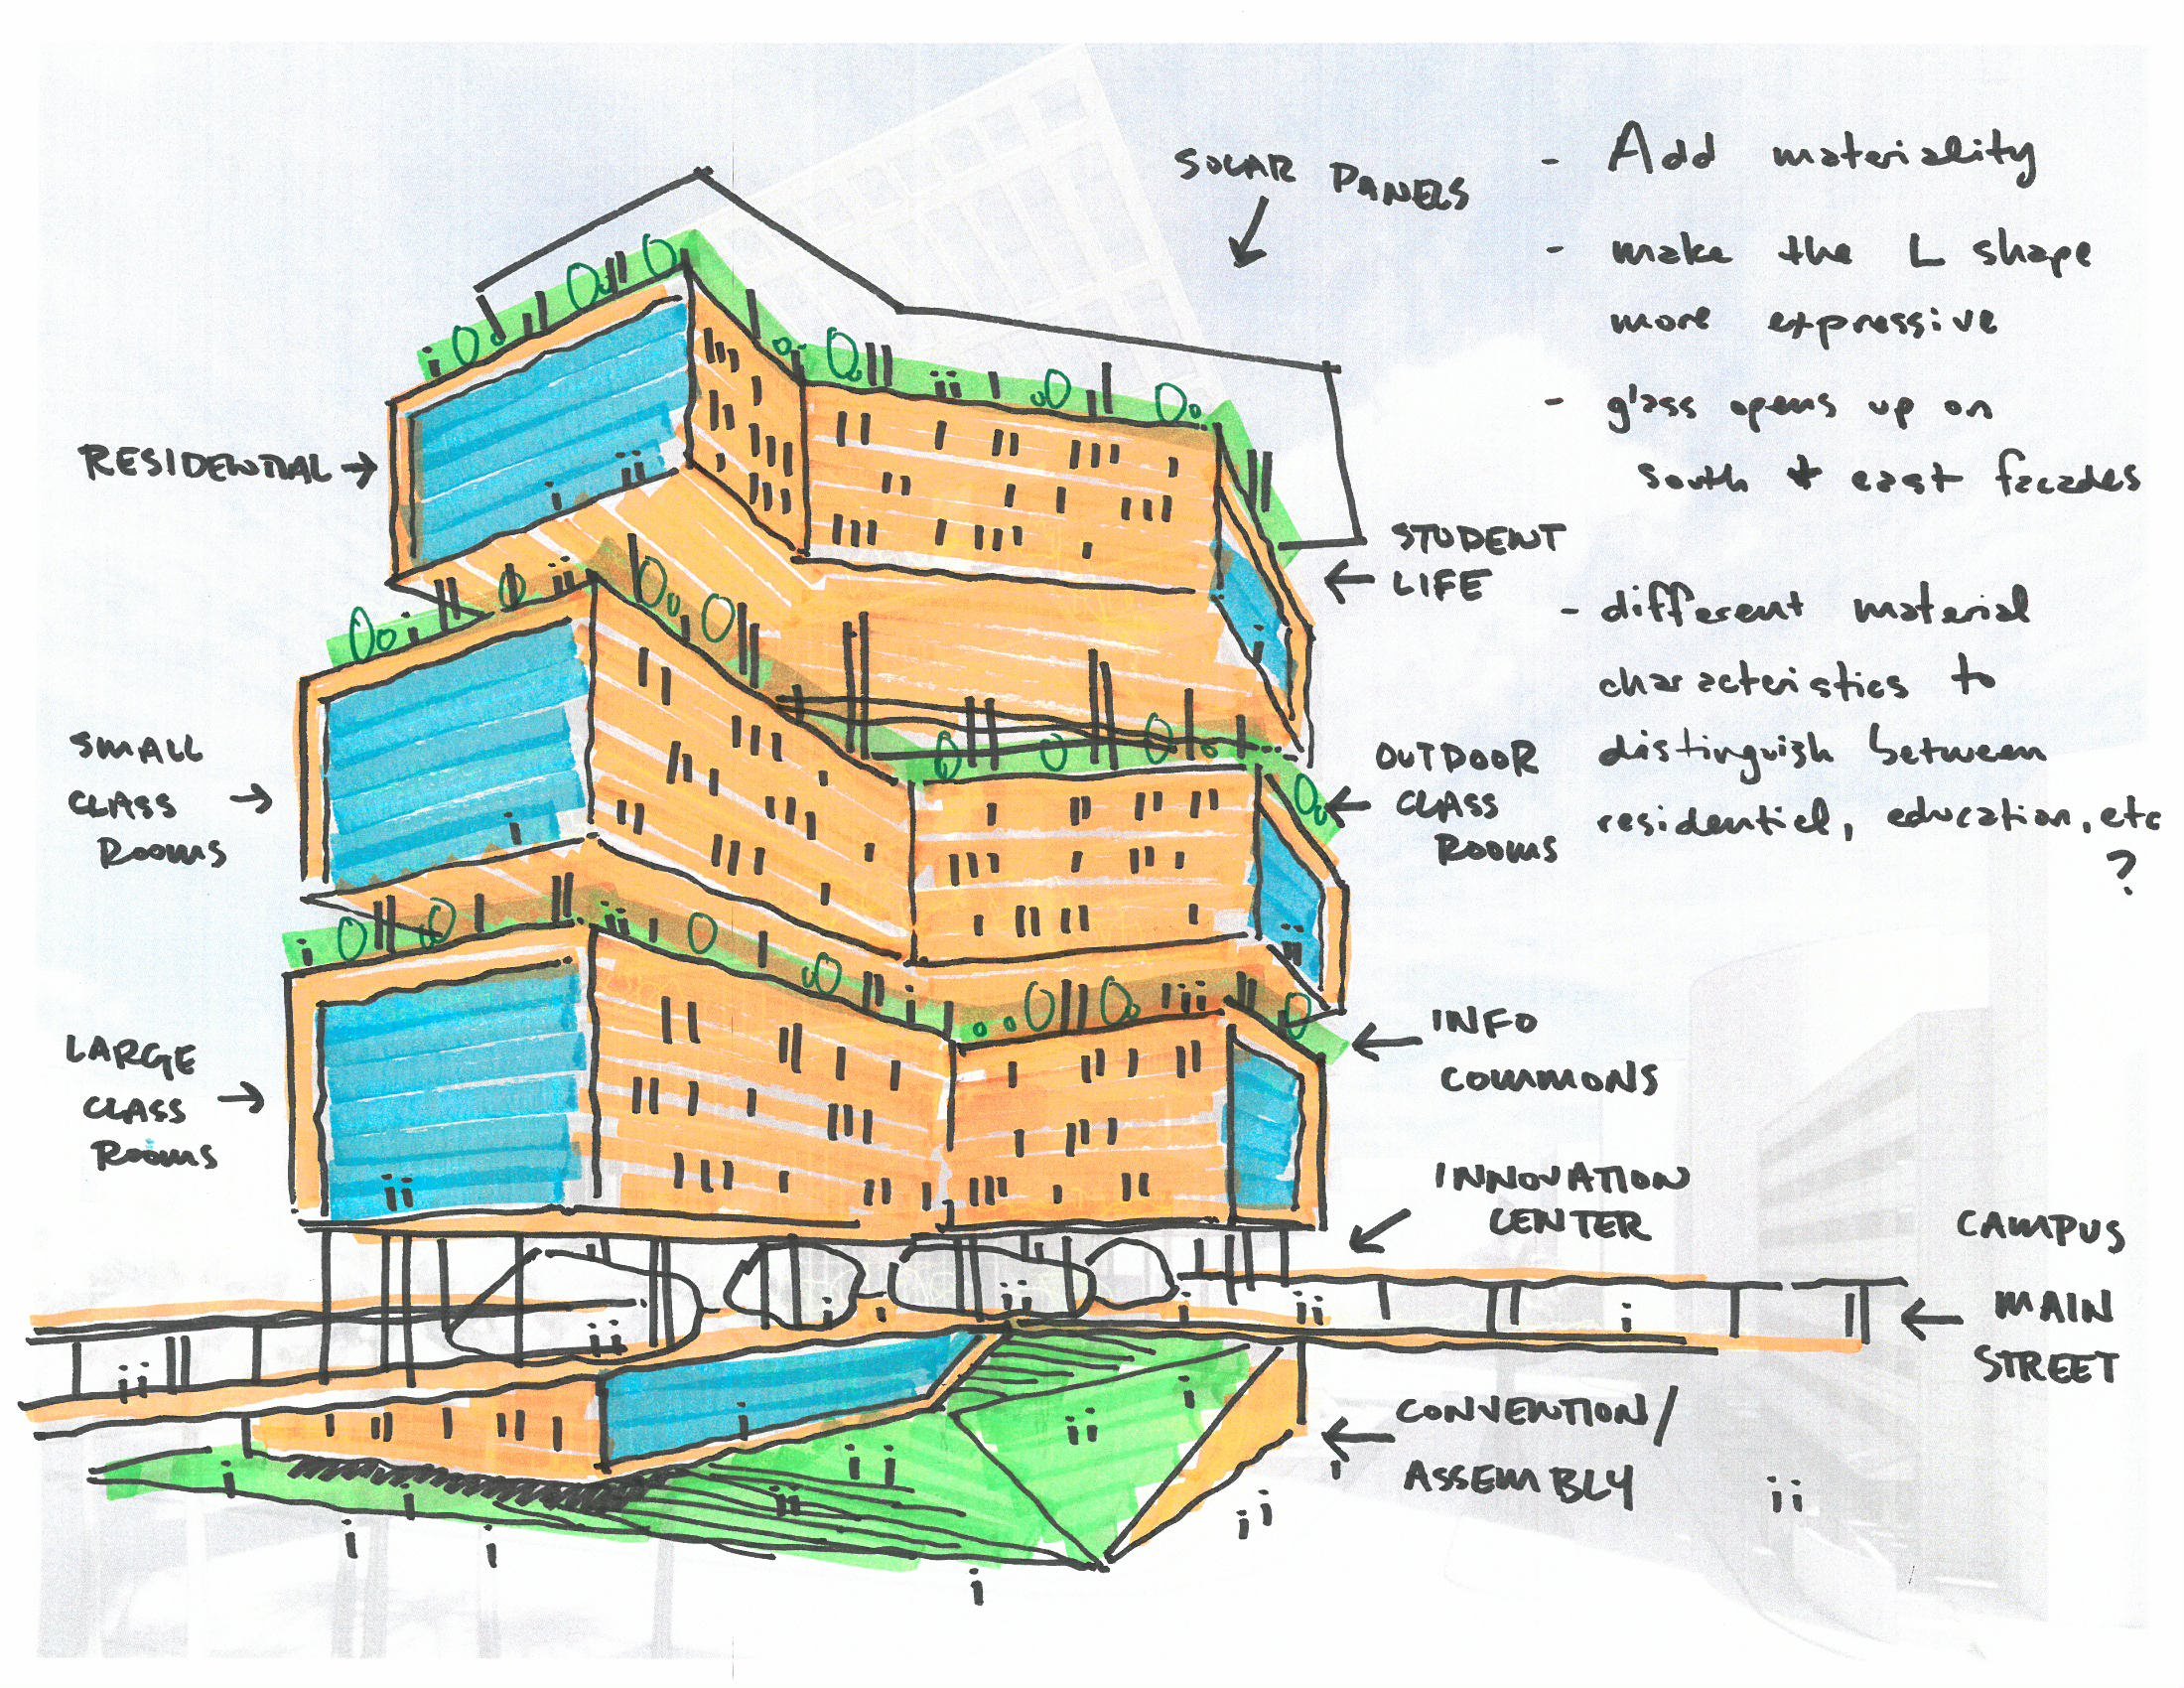 SOLAR PANELS
- Add materiality
- make the L shape
more expressive
- glass opens up on
south + east facades
- different material
characteristics to
distinguish between
residential, education, etc
?
RESIDENTIAL
STUDENT
LIFE
SMALL
CLASS
ROOMS
OUTDOOR
CLASS
ROOMS
LARGE
CLASS
ROOMS
INFO
COMMONS
INNOVATION
CENTER
CAMPUS
MAIN
STREET
CONVENTION/
ASSEMBLY